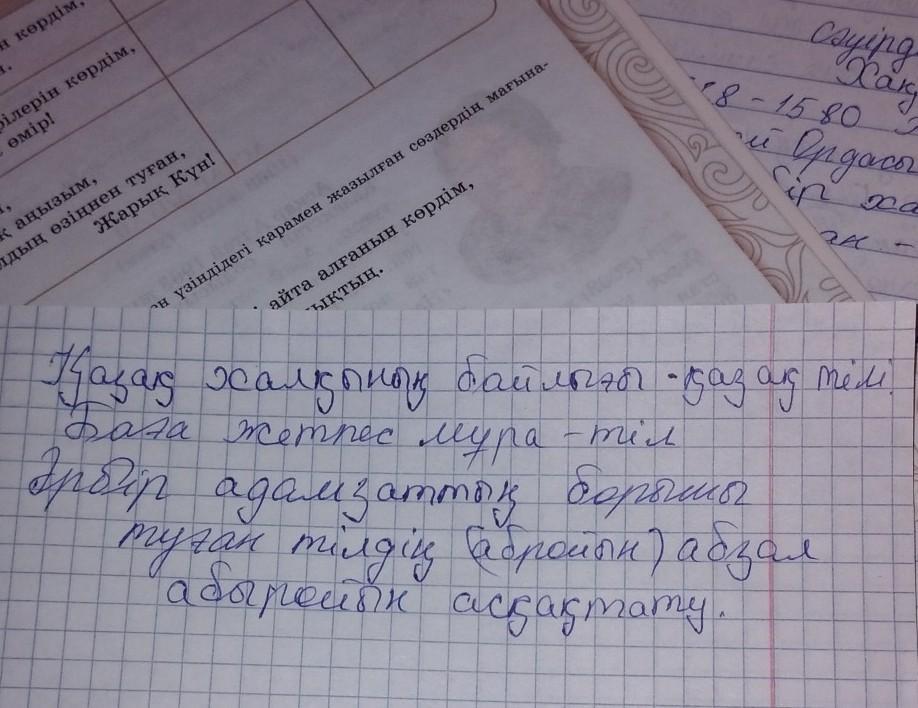 н көрдім,
рілерін көрдім,
өмір!
қ аңызым,
лдың өзіңнен туған,
Жарық Күн!
ен үзіндідегі қарамен жазылған сөздердің мағына-
айта алғанын көрдім,
ықтың.
сәуірд
Хақ
18 - 1580
й Ордасы
бір ха
ан -
Қазақ халқының байлығы - қазақ тілі.
Баға жетпес мұра - тіл
Әрбір адамзаттың борышы
туған тілдің (абройын) абзал
абыройын асқақтату.